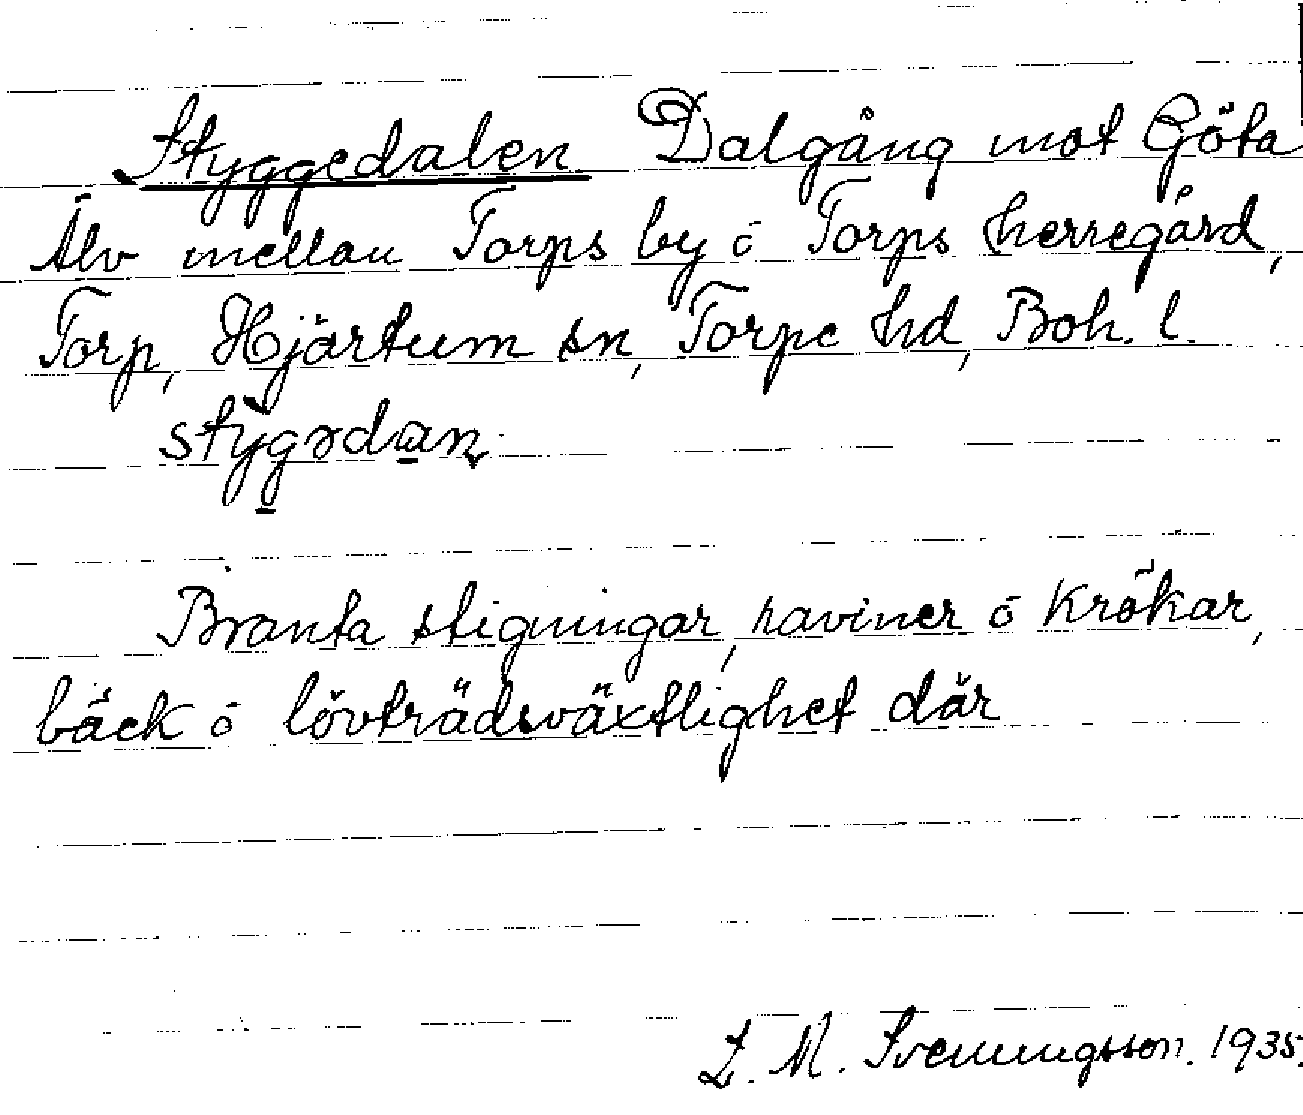 Styggedalen Dalgång mot Göta
Älv mellan Torps by ó Torps herregård,
Torp, Hjärtum sn, Torpe hd, Boh. l.
stỳgədan
Branta stigningar, raviner ó krökar,
bäck ó lövträdsväxtlighet där
L. M. Svenningsson. 1935.